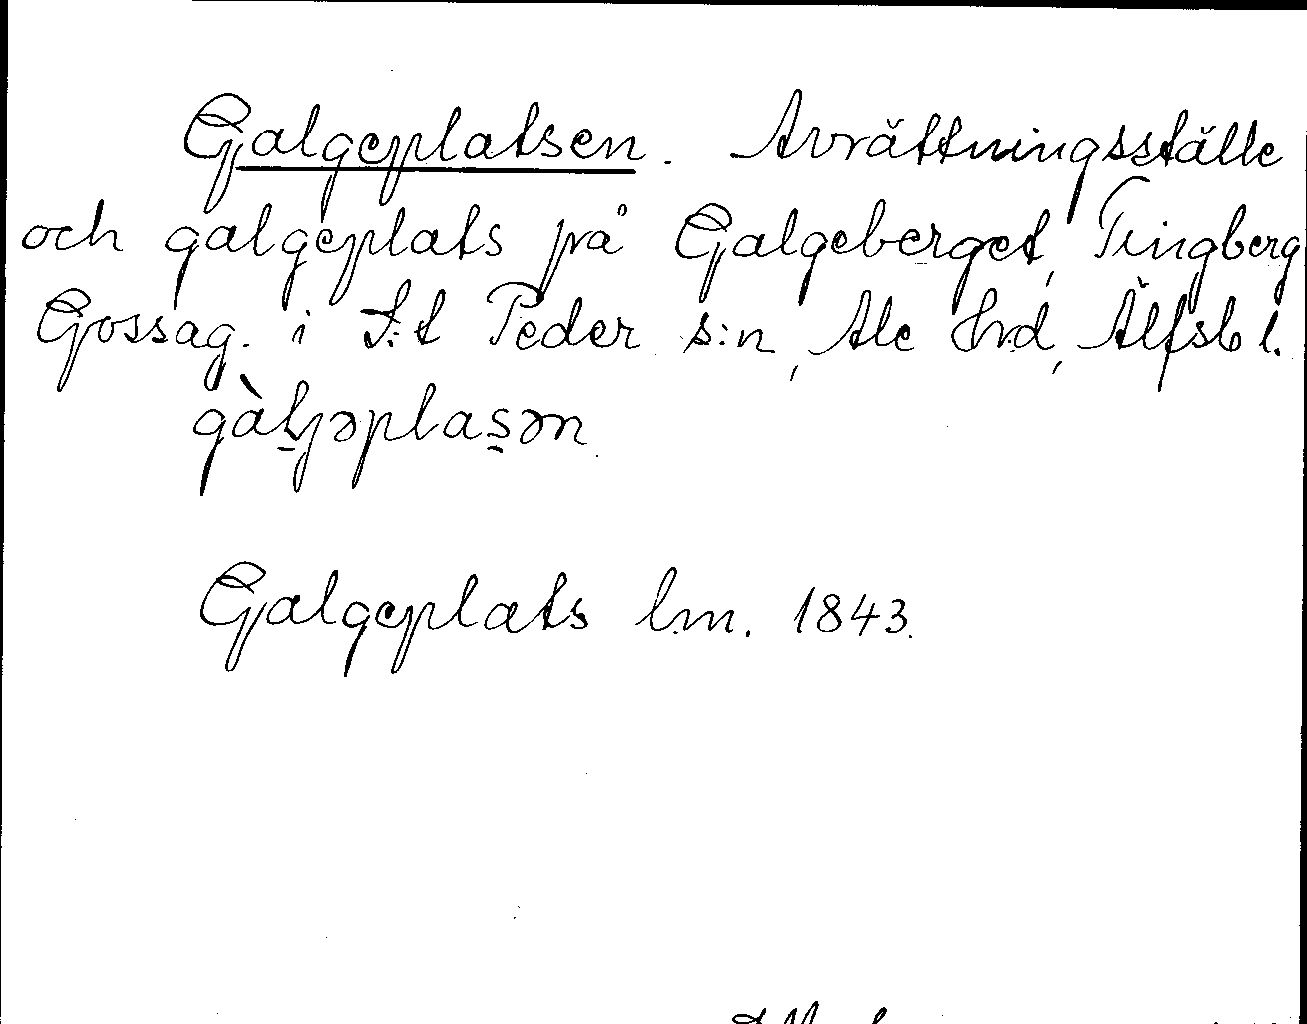 Galgeplatsen. Avrättningsställe
och galgeplats på Galgeberget, Tingberg
Gossag. i S:t Peder s:n, Ale Hrd, Älfsb l.
gàlɡəplasən
Galgeplats l.m. 1843.